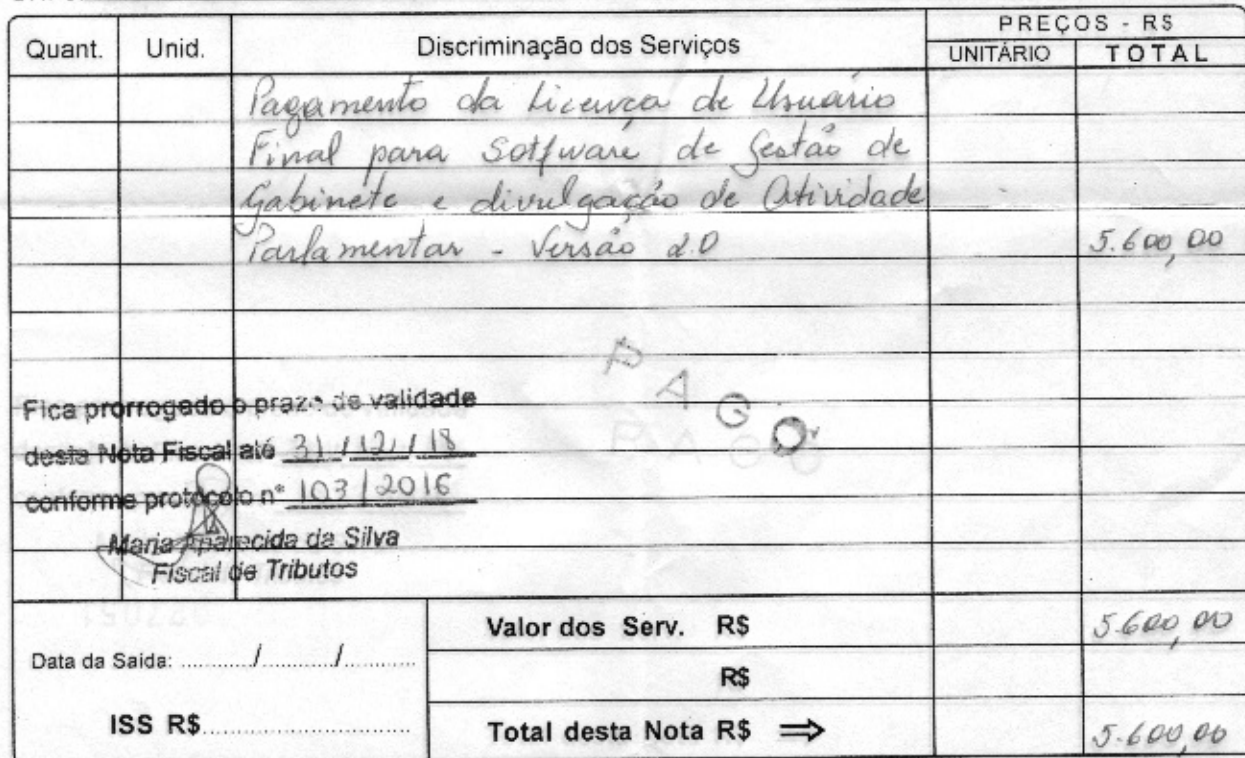 PREÇOS - R$
Quant. Unid. Discriminação dos Serviços UNITÁRIO TOTAL
Pagamento da Licença de Usuário
Final para Sotfware de Gestão de
Gabinete e divulgação de Atividade
Parlamentar - Versão 2.0 5.600,00
PAGO
PAGO
Fica prorrogado o prazo de validade
desta Nota Fiscal até 31/12/18
conforme protocolo nº 103/2016
Maria Aparecida da Silva
Fiscal de Tributos
Valor dos Serv. R$ 5.600,00
Data da Saída: ........./........./.........
R$
ISS R$.........
Total desta Nota R$ ⇒ 5.600,00